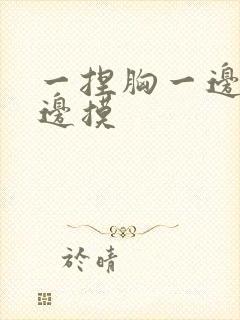 一捏胸一邊
邊摸
於晴